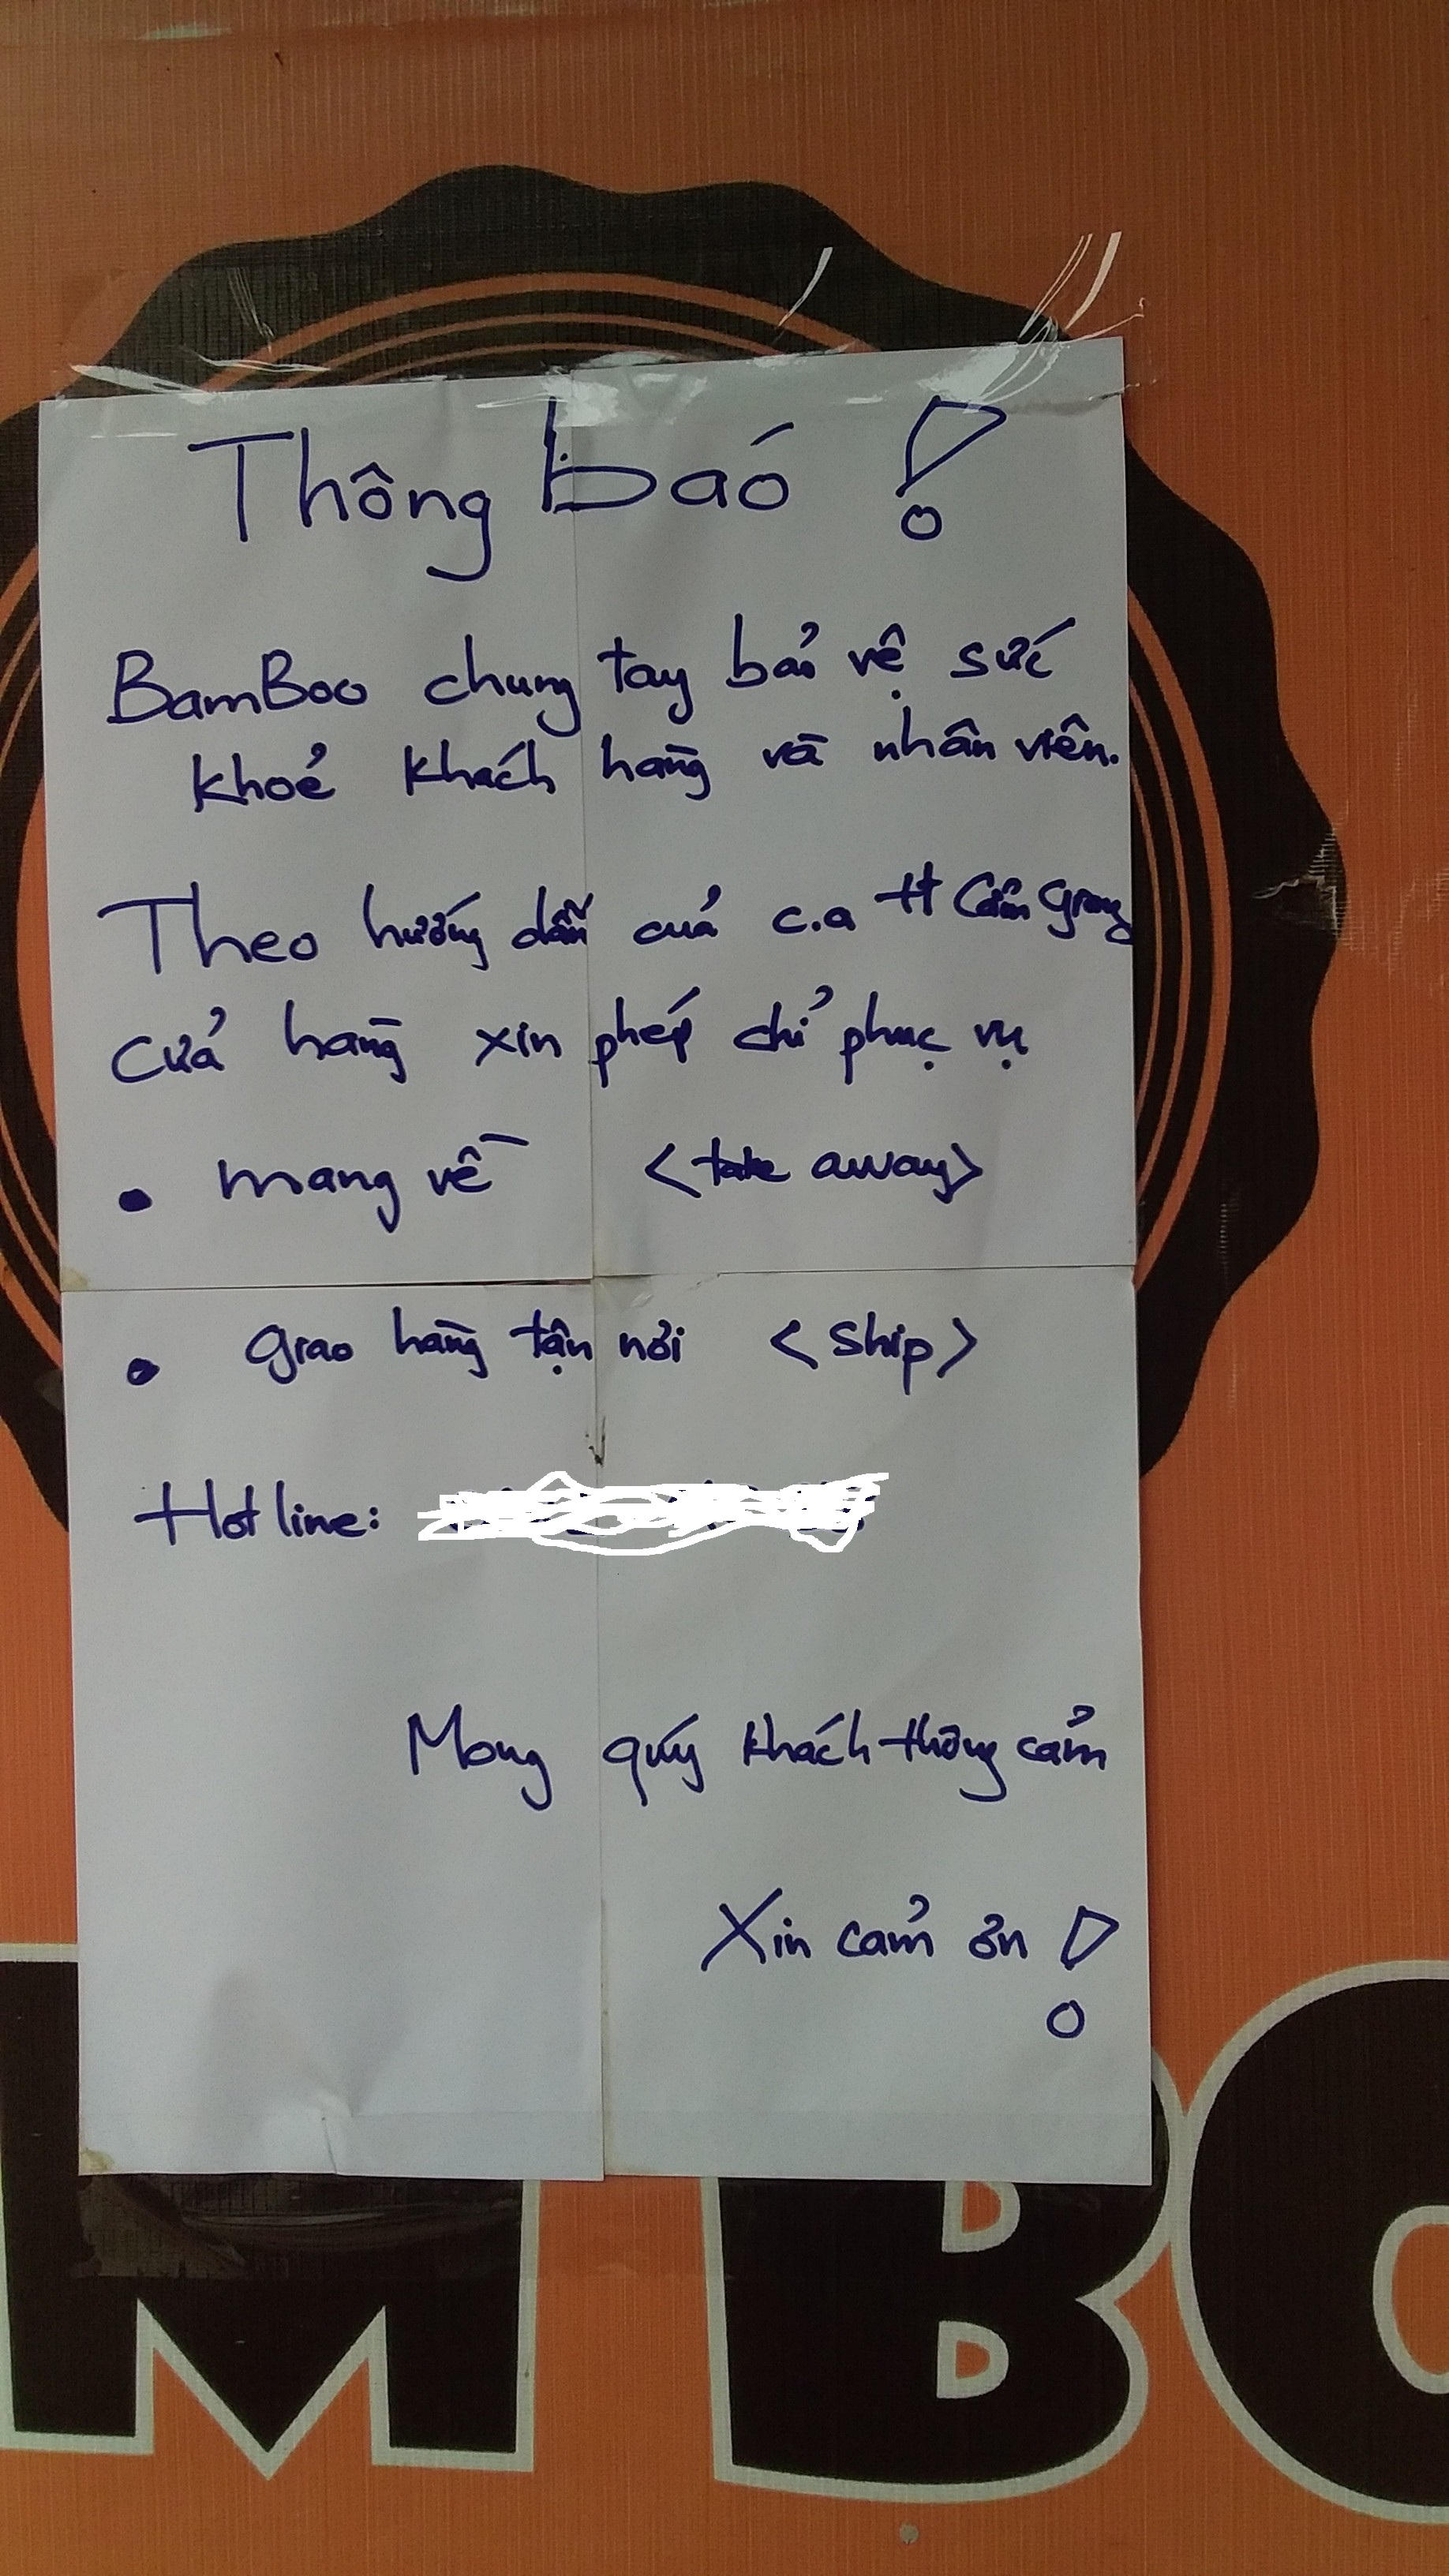 Thông báo !
BamBoo chung tay bảo vệ sức
khoẻ khách hàng và nhân viên.
Theo hướng dẫn của c.a H Cẩm Giàng
Cửa hàng xin phép chỉ phục vụ
• mang về <take away>
• giao hàng tận nơi <ship>
Hotline:
Mong quý khách thông cảm
Xin cảm ơn !
M BO